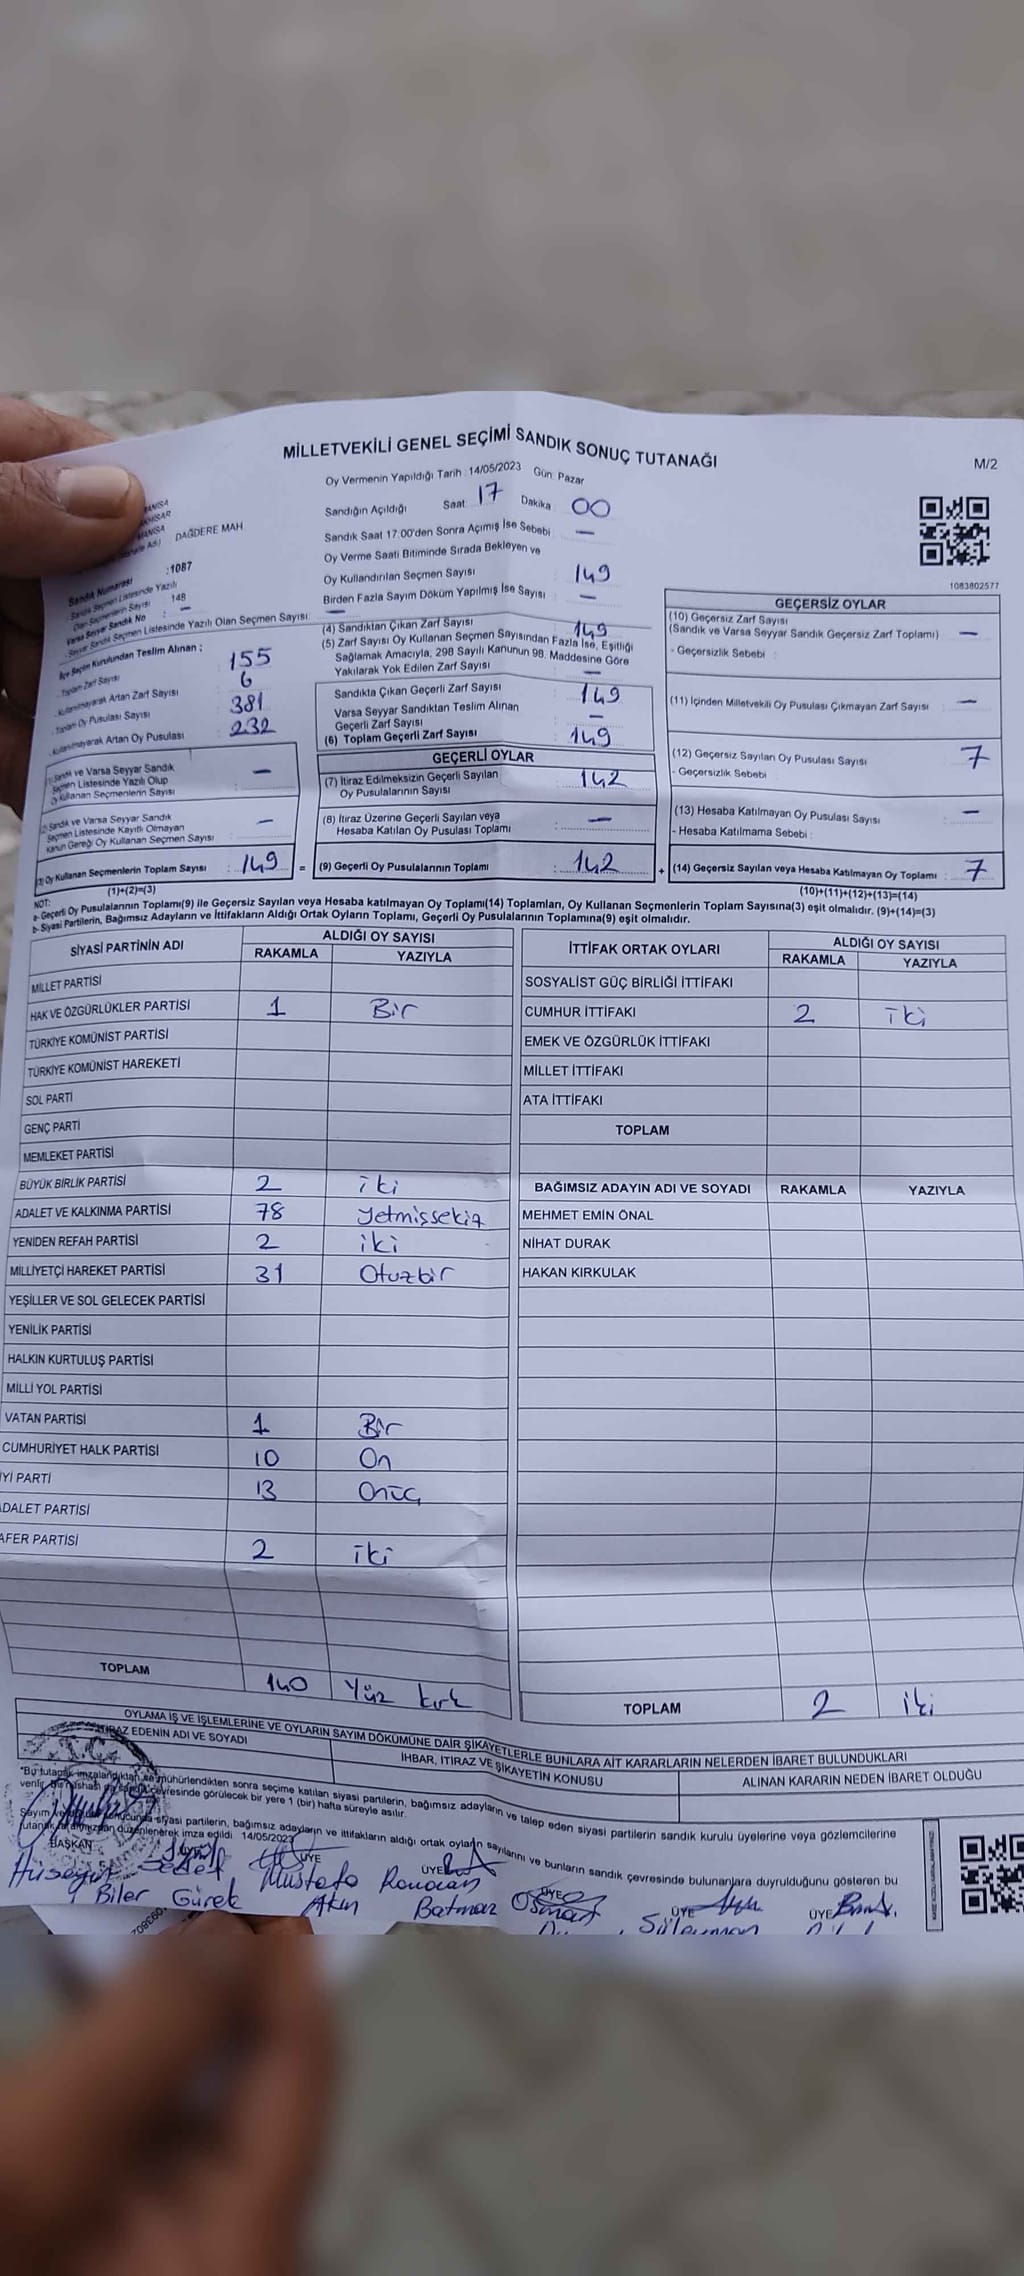 MİLLETVEKİLİ GENEL SEÇİMİ SANDIK SONUÇ TUTANAĞI
M/2
Oy Vermenin Yapıldığı Tarih : 14/05/2023 Gün Pazar
Sandığın Açıldığı Saat 17 Dakika 00
Sandık Saat 17:00'den Sonra Açımış İse Sebebi —
Oy Verme Saati Bitiminde Sırada Bekleyen ve
Oy Kullandırılan Seçmen Sayısı 149
Birden Fazla Sayım Döküm Yapılmış İse Sayısı —
DAĞDERE MAH
Sandık Numarası :1087
Sandık Seçmen Listesinde Yazılı
Olan Seçmenlerin Sayısı 148
Varsa Seyyar Sandık No : —
- Seyyar Sandık Seçmen Listesinde Yazılı Olan Seçmen Sayısı: —
İlçe Seçim Kurulundan Teslim Alınan :
- Toplam Zarf Sayısı 155
- Kullanılmayarak Artan Zarf Sayısı 6
- Toplam Oy Pusulası Sayısı 381
- Kullanılmayarak Artan Oy Pusulası 232
(1) Sandık ve Varsa Seyyar Sandık
Seçmen Listesinde Yazılı Olup
Oy Kullanan Seçmenlerin Sayısı —
(2) Sandık ve Varsa Seyyar Sandık
Seçmen Listesinde Kayıtlı Olmayan
Kanun Gereği Oy Kullanan Seçmen Sayısı —
(3) Oy Kullanan Seçmenlerin Toplam Sayısı : 149 =
(1)+(2)=(3)
(4) Sandıktan Çıkan Zarf Sayısı 149
(5) Zarf Sayısı Oy Kullanan Seçmen Sayısından Fazla İse, Eşitliği
Sağlamak Amacıyla, 298 Sayılı Kanunun 98. Maddesine Göre
Yakılarak Yok Edilen Zarf Sayısı —
Sandıkta Çıkan Geçerli Zarf Sayısı 149
Varsa Seyyar Sandıktan Teslim Alınan
Geçerli Zarf Sayısı —
(6) Toplam Geçerli Zarf Sayısı 149
GEÇERLİ OYLAR
(7) İtiraz Edilmeksizin Geçerli Sayılan
Oy Pusulalarının Sayısı 142
(8) İtiraz Üzerine Geçerli Sayılan veya
Hesaba Katılan Oy Pusulası Toplamı : —
(9) Geçerli Oy Pusulalarının Toplamı 142 +
1083802577
GEÇERSİZ OYLAR
(10) Geçersiz Zarf Sayısı
(Sandık ve Varsa Seyyar Sandık Geçersiz Zarf Toplamı) —
- Geçersizlik Sebebi :
(11) İçinden Milletvekili Oy Pusulası Çıkmayan Zarf Sayısı —
(12) Geçersiz Sayılan Oy Pusulası Sayısı 7
- Geçersizlik Sebebi
(13) Hesaba Katılmayan Oy Pusulası Sayısı —
- Hesaba Katılmama Sebebi :
(14) Geçersiz Sayılan veya Hesaba Katılmayan Oy Toplamı : 7
(10)+(11)+(12)+(13)=(14)
NOT:
a- Geçerli Oy Pusulalarının Toplamı(9) ile Geçersiz Sayılan veya Hesaba katılmayan Oy Toplamı(14) Toplamları, Oy Kullanan Seçmenlerin Toplam Sayısına(3) eşit olmalıdır. (9)+(14)=(3)
b- Siyasi Partilerin, Bağımsız Adayların ve İttifakların Aldığı Ortak Oyların Toplamı, Geçerli Oy Pusulalarının Toplamına(9) eşit olmalıdır.
SİYASİ PARTİNİN ADI
ALDIĞI OY SAYISI
RAKAMLA YAZIYLA
MİLLET PARTİSİ
HAK VE ÖZGÜRLÜKLER PARTİSİ 1 Bir
TÜRKİYE KOMÜNİST PARTİSİ
TÜRKİYE KOMÜNİST HAREKETİ
SOL PARTİ
GENÇ PARTİ
MEMLEKET PARTİSİ
BÜYÜK BİRLİK PARTİSİ 2 iki
ADALET VE KALKINMA PARTİSİ 78 yetmişsekiz
YENİDEN REFAH PARTİSİ 2 iki
MİLLİYETÇİ HAREKET PARTİSİ 31 Otuzbir
YEŞİLLER VE SOL GELECEK PARTİSİ
YENİLİK PARTİSİ
HALKIN KURTULUŞ PARTİSİ
MİLLİ YOL PARTİSİ
VATAN PARTİSİ 1 Bir
CUMHURİYET HALK PARTİSİ 10 On
İYİ PARTİ 13 Onüç
ADALET PARTİSİ
AFER PARTİSİ 2 iki
TOPLAM 140 Yüz kırk
İTTİFAK ORTAK OYLARI
ALDIĞI OY SAYISI
RAKAMLA YAZIYLA
SOSYALİST GÜÇ BİRLİĞİ İTTİFAKI
CUMHUR İTTİFAKI 2 iki
EMEK VE ÖZGÜRLÜK İTTİFAKI
MİLLET İTTİFAKI
ATA İTTİFAKI
TOPLAM
BAĞIMSIZ ADAYIN ADI VE SOYADI RAKAMLA YAZIYLA
MEHMET EMİN ÖNAL
NİHAT DURAK
HAKAN KIRKULAK
TOPLAM 2 iki
OYLAMA İŞ VE İŞLEMLERİNE VE OYLARIN SAYIM DÖKÜMÜNE DAİR ŞİKAYETLERLE BUNLARA AİT KARARLARIN NELERDEN İBARET BULUNDUKLARI
İTİRAZ EDENİN ADI VE SOYADI
İHBAR, İTİRAZ VE ŞİKAYETİN KONUSU
ALINAN KARARIN NEDEN İBARET OLDUĞU
"Bu tutanak imzalandıktan ve mühürlendikten sonra seçime katılan siyasi partilerin, bağımsız adayların ve talep eden siyasi partilerin sandık kurulu üyelerine veya gözlemcilerine
verilir, bir nüshası da sandık çevresinde görülecek bir yere 1 (bir) hafta süreyle asılır.
Sayım ve döküm sonucunda siyasi partilerin, bağımsız adayların ve ittifakların aldığı ortak oyların sayılarını ve bunların sandık çevresinde bulunanlara duyrulduğunu gösteren bu
tutanak tarafımızdan düzenlenerek imza edildi 14/05/2023
T.C.
BAŞKAN ÜYE ÜYE ÜYE ÜYE ÜYE
Hüseyin Sedef Mustafa Ramazan Osman Süleyman
Biler Gürek Akın Batmaz